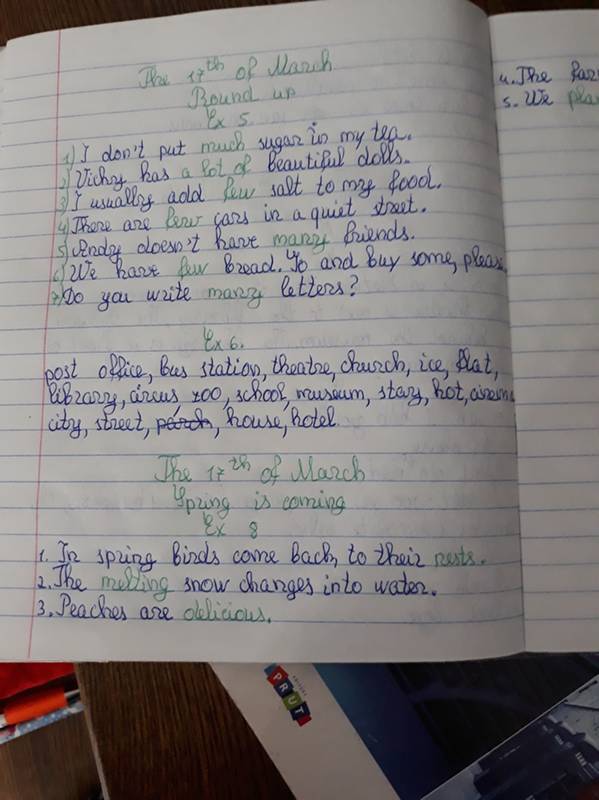 The 17th of March
Round up
Ex 5.
1) I don't put much sugar in my tea.
2) Vichy has a lot of beautiful dolls.
3) I usually add few salt to my food.
4) There are few cars in a quiet street.
5) Andy doesn't have many friends.
6) We have few bread. Go and buy some, please
7) Do you write many letters?
Ex 6.
post office, bus station, theatre, church, ice, flat,
library, circus zoo, school, museum, stay, hot,
city, street, house, hotel.
The 17th of March
Spring is coming
Ex 8
1. In spring birds come back to their nests.
2. The melting snow changes into water.
3. Peaches are delicious.
4. The
5. We
PRUT